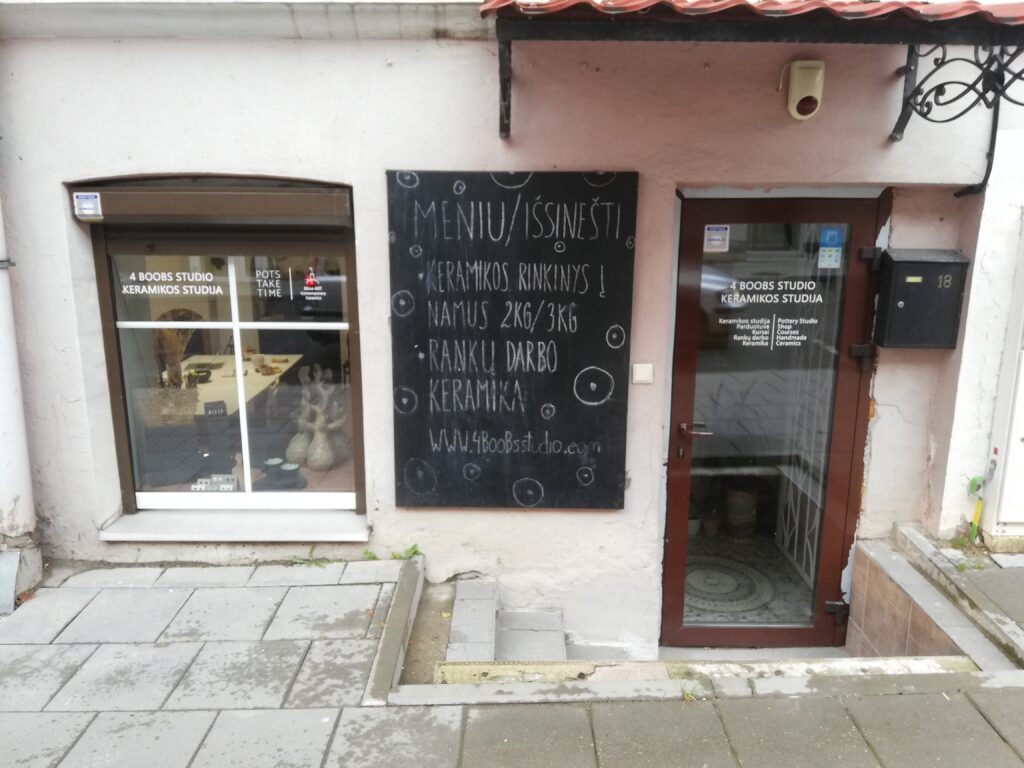 4 BOOBS STUDIO
KERAMIKOS STUDIJA
POTS
TAKE
TIME
MENIU/IŠSINEŠTI
KERAMIKOS RINKINYS Į
NAMUS 2KG/3KG
RANKŲ DARBO
KERAMIKA
WWW.4BOOBSSTUDIO.COM
4 BOOBS STUDIO
KERAMIKOS STUDIJA
Keramikos studija Pottery Studio
Parduotuvė Shop
Kursai Courses
Rankų darbo Handmade
Keramika Ceramics
18